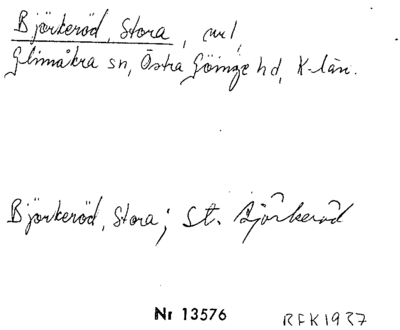 Björkeröd, Stora, nrl,
Glimåkra sn, Östra Göinge hd, K-län.
Björkeröd, Stora; St. Björkeröd
Nr 13576 RFK 1937